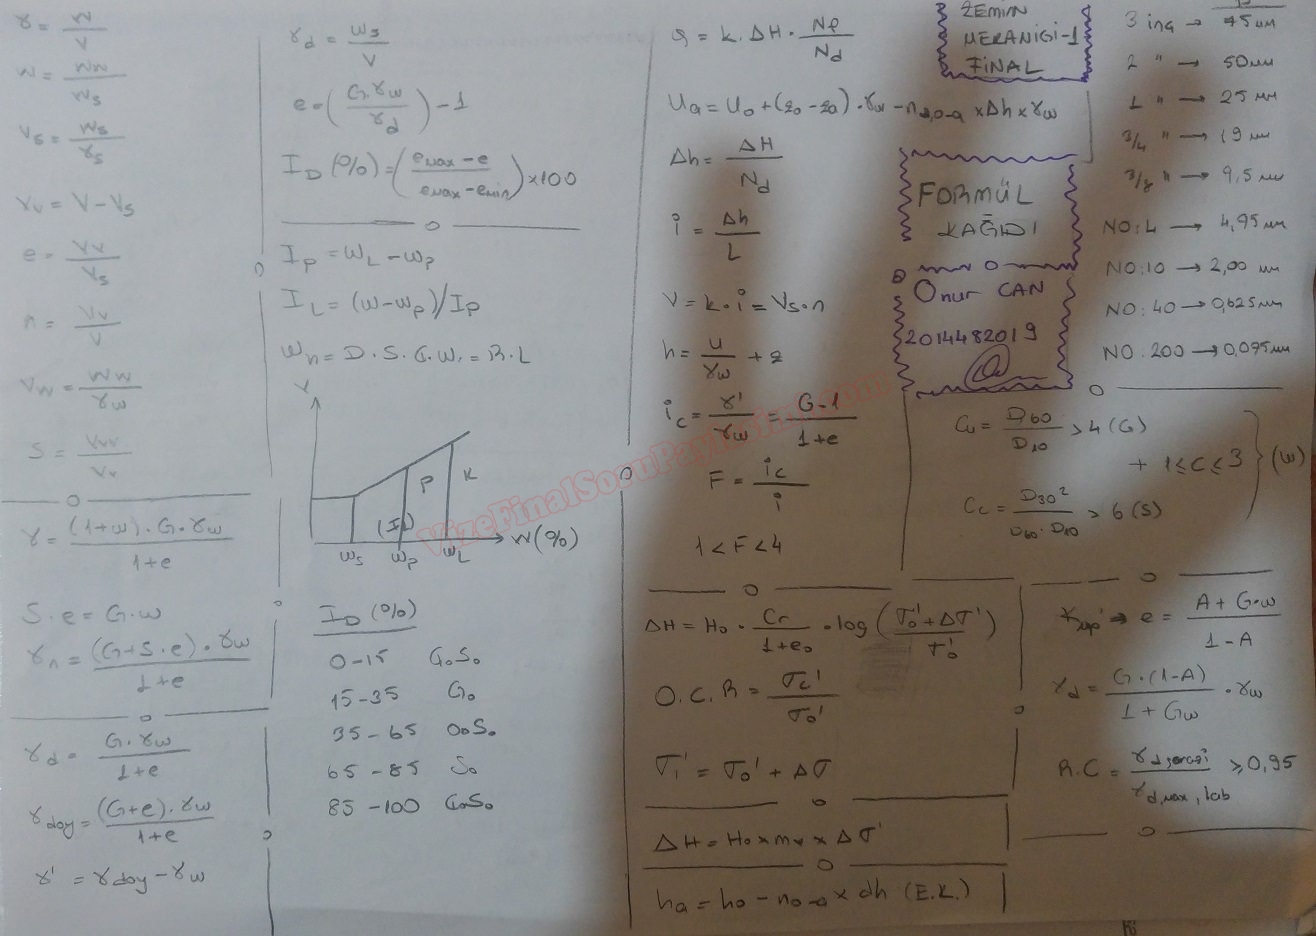 γ = W / V
w = Ww / Ws
Vs = Ws / γs
Vv = V - Vs
e = Vv / Vs
n = Vv / V
Vw = Ww / γw
S = Vw / Vv
γ = (1+w).G.γw / 1+e
S.e = G.w
γn = (G+S.e).γw / 1+e
γd = G.γw / 1+e
γdoy = (G+e).γw / 1+e
γ' = γdoy - γw
γd = Ws / V
e = (G.γw / γd) - 1
ID (%) = (emax - e / emax - emin) x 100
Ip = wL - wp
IL = (w - wp)/Ip
P
K
(IL)
ws wp wL w(%)
ID (%)
0-15 G.S.
15-35 G.
35-65 O.S.
65-85 S.
85-100 G.S.
q = k.ΔH.Nf / Nd
ua = u0 + (z0 - za).γw - nd,0-a x Δh x γw
Δh = ΔH / Nd
i = Δh / L
V = k.i = Vs.n
h = u / γw + z
ic = γ' / γw = G-1 / 1+e
F = ic / i
1 < F < 4
ΔH = H0 . Cr / 1+e0 . log (σ0' + Δσ' / σ0')
O.C.R = σc' / σ0'
σ1' = σ0' + Δσ
ΔH = H0 x mv x Δσ'
ha = h0 - n0-a x dh (E.K.)
ZEMİN
MEKANİĞİ-1
FİNAL
FORMÜL
KAĞIDI
Onur CAN
2014482019
3 inç → 75 mm
2 " → 50 mm
1 " → 25 mm
3/4 " → 19 mm
3/8 " → 9,5 mm
NO:4 → 4,95 mm
NO:10 → 2,00 mm
NO:40 → 0,625 mm
NO:200 → 0,075 mm
Cu = D60 / D10 > 4 (G)
+ 1 ≤ C ≤ 3 } (W)
Cc = D30² / D60.D10 > 6 (S)
e = A + G.w / 1 - A
γd = G.(1-A) / 1 + Gw . γw
R.C = γd,arazi / γd,max,lab ≥ 0,95
VizeFinalSoruPaylasimi.com